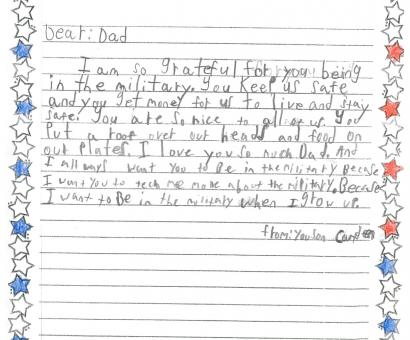 Dear: Dad
I am so grateful for you being
in the military. You keep us safe
and you get money for us to live and stay
safe. You are so nice to all of us. You
put a roof over our heads and food on
our plates. I love you so much Dad. And
I all ways want you to be in the military Becase
I want you to tech me more about the military. Becase
I want to Be in the military when I grow up.
from: You son Camden